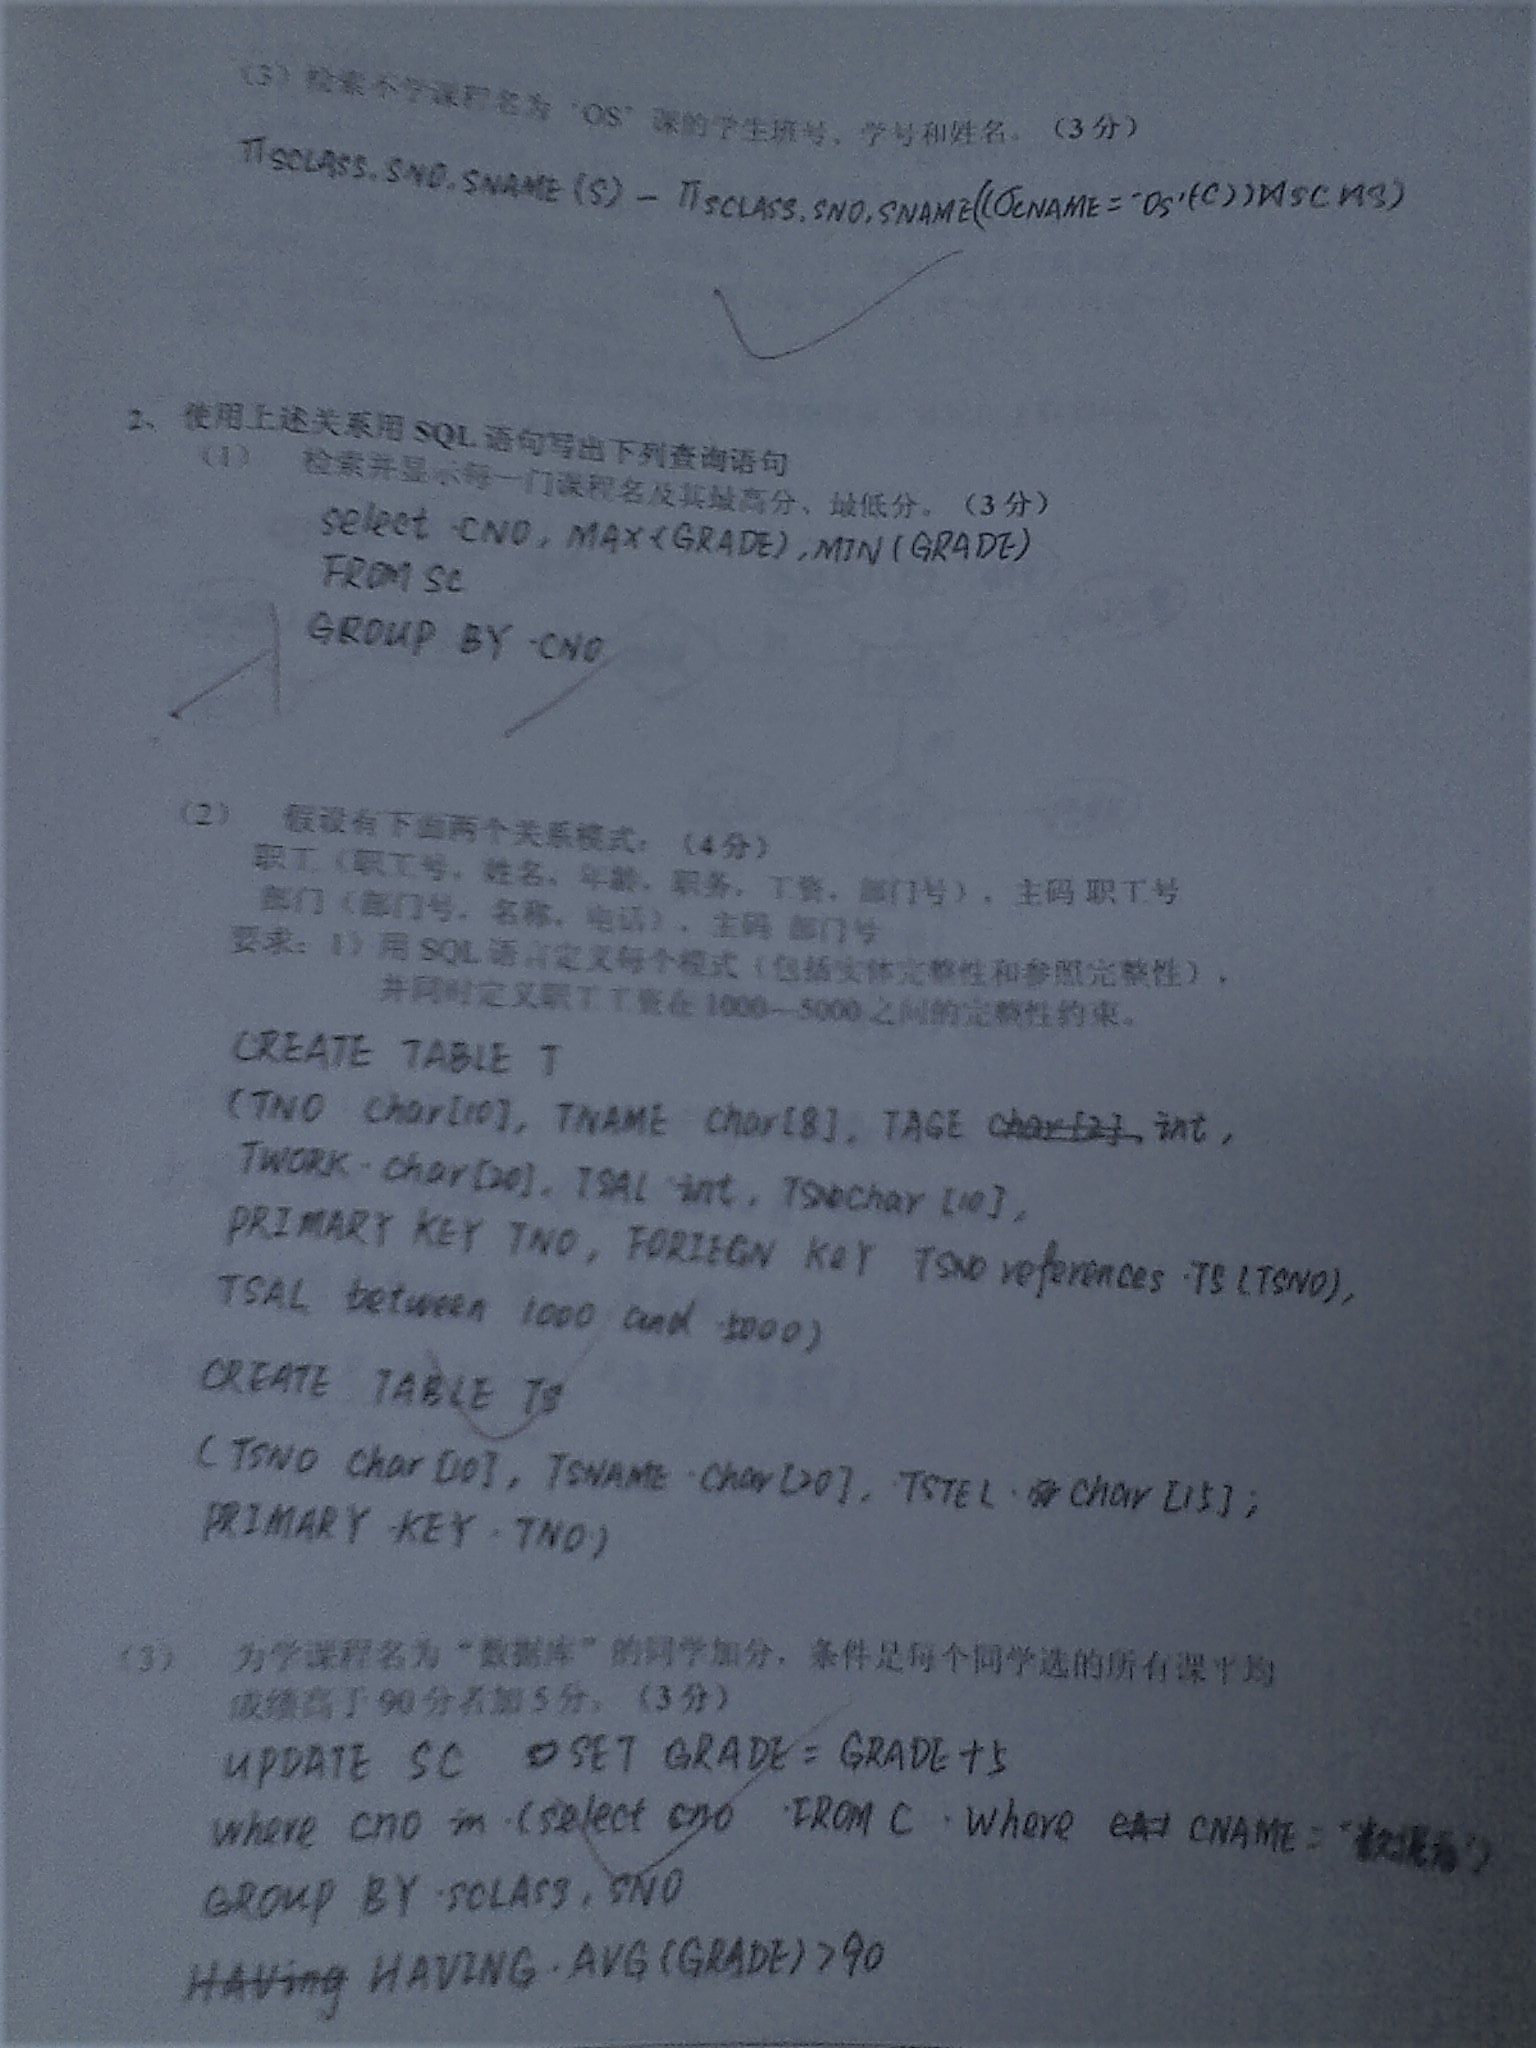 (3) 检索不学课程名为"OS"课的学生班号、学号和姓名。(3分)
ΠSCLASS.SNO.SNAME(S) - ΠSCLASS.SNO.SNAME((σCNAME='OS'(C))⋈SC⋈S)
2、使用上述关系用 SQL 语句写出下列查询语句
(1) 检索并显示每一门课程名及其最高分、最低分。(3分)
select CNO, MAX(GRADE), MIN(GRADE)
FROM SC
GROUP BY CNO
(2) 假设有下面两个关系模式:(4分)
职工(职工号,姓名,年龄,职务,工资,部门号),主码 职工号
部门(部门号,名称,电话),主码 部门号
要求:1)用 SQL 语言定义每个模式(包括实体完整性和参照完整性),
并同时定义职工工资在 1000—5000 之间的完整性约束。
CREATE TABLE T
(TNO char[10], TNAME char[8], TAGE char[2], int,
TWORK char[20], TSAL int, TSNO char [10],
PRIMARY KEY TNO, FORIEGN KEY TSNO references TS(TSNO),
TSAL between 1000 and 5000)
CREATE TABLE TS
(TSNO char[10], TSNAME char[20], TSTEL char[15];
PRIMARY KEY TNO)
(3) 为学课程名为"数据库"的同学加分,条件是每个同学选的所有课平均
成绩高于 90 分者加 5 分。(3分)
UPDATE SC SET GRADE = GRADE+5
where cno in (select cno FROM C where CNAME = '数据库')
GROUP BY SCLASS, SNO
HAVing HAVING AVG(GRADE)>90